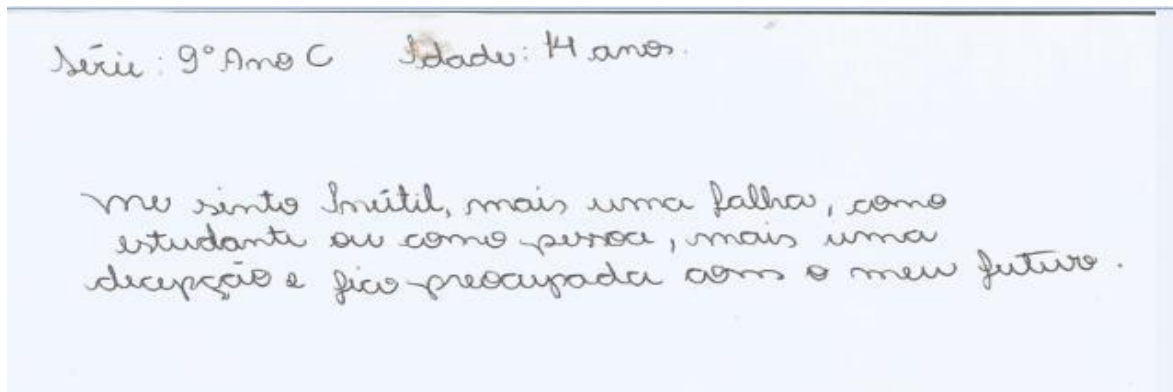 Série: 9º Ano C Idade: 14 anos.
me sinto Inútil, mais uma falha, como
estudante ou como pessoa, mais uma
decepção e fico preocupada com o meu futuro.